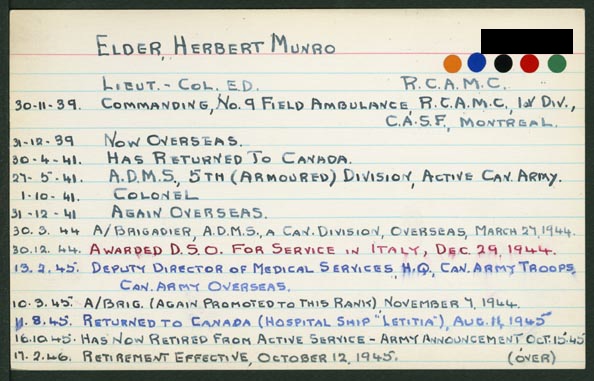 ELDER, HERBERT MUNRO
LIEUT.-COL. E.D. R.C.A.M.C.
30-11-39. COMMANDING, NO. 9 FIELD AMBULANCE, R.C.A.M.C., 1st DIV.,
C.A.S.F., MONTREAL.
31-12-39 NOW OVERSEAS.
30-4-41. HAS RETURNED TO CANADA.
27-5-41. A.D.M.S., 5TH (ARMOURED) DIVISION, ACTIVE CAN. ARMY.
1-10-41. COLONEL
31-12-41 AGAIN OVERSEAS.
30.3.44 A/BRIGADIER, A.D.M.S., A CAN. DIVISION, OVERSEAS, MARCH 27, 1944.
30.12.44. AWARDED D.S.O. FOR SERVICE IN ITALY, DEC. 29, 1944.
13.2.45. DEPUTY DIRECTOR OF MEDICAL SERVICES, H.Q., CAN. ARMY TROOPS,
CAN. ARMY OVERSEAS.
10.3.45. A/BRIG. (AGAIN PROMOTED TO THIS RANK), NOVEMBER 7, 1944.
11.8.45. RETURNED TO CANADA (HOSPITAL SHIP "LETITIA"), AUG. 11, 1945
16.10.45. HAS NOW RETIRED FROM ACTIVE SERVICE - ARMY ANNOUNCEMENT OCT. 15.45
17.2.46. RETIREMENT EFFECTIVE, OCTOBER 12, 1945. (OVER)